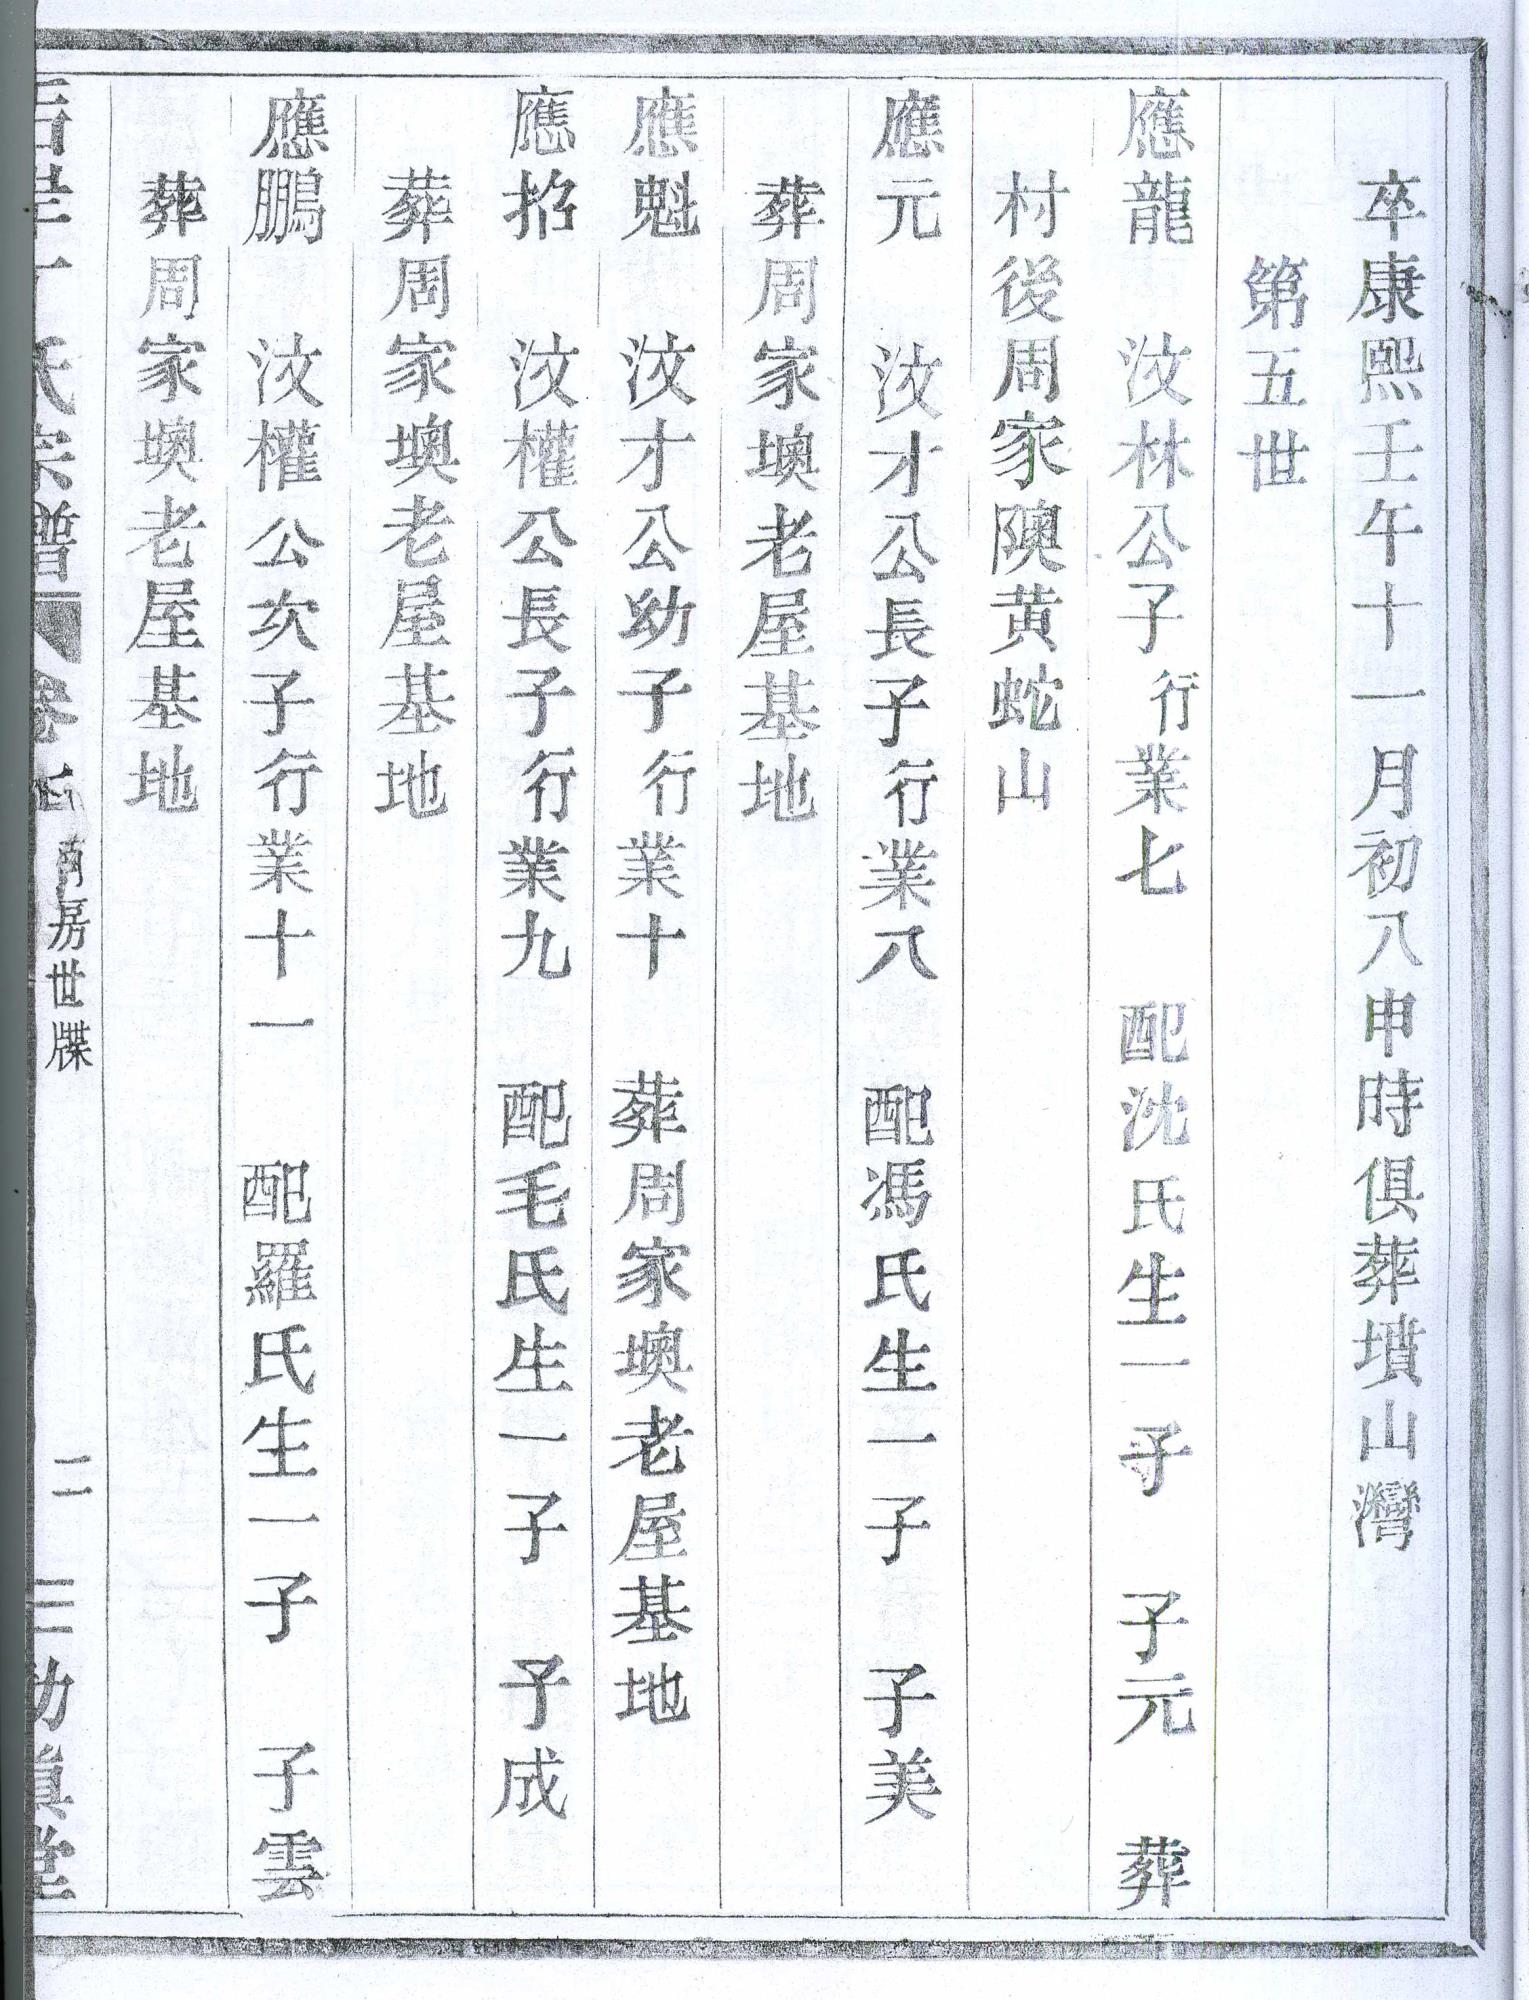 卒康熙壬午十一月初八申時俱葬墳山灣
第五世
應龍 汶林公子行業七 配沈氏生一子 子元 葬
村後周家隩黄蛇山
應元 汶才公長子行業八 配馮氏生一子 子美
葬周家墺老屋基地
應魁 汶才公幼子行業十 葬周家墺老屋基地
應掐 汶權公長子行業九 配毛氏生一子 子成
葬周家墺老屋基地
應鵬 汶權公次子行業十一 配羅氏生一子 子雲
葬周家墺老屋基地
氏宗譜 卷 南房世牒 二 三勅真堂